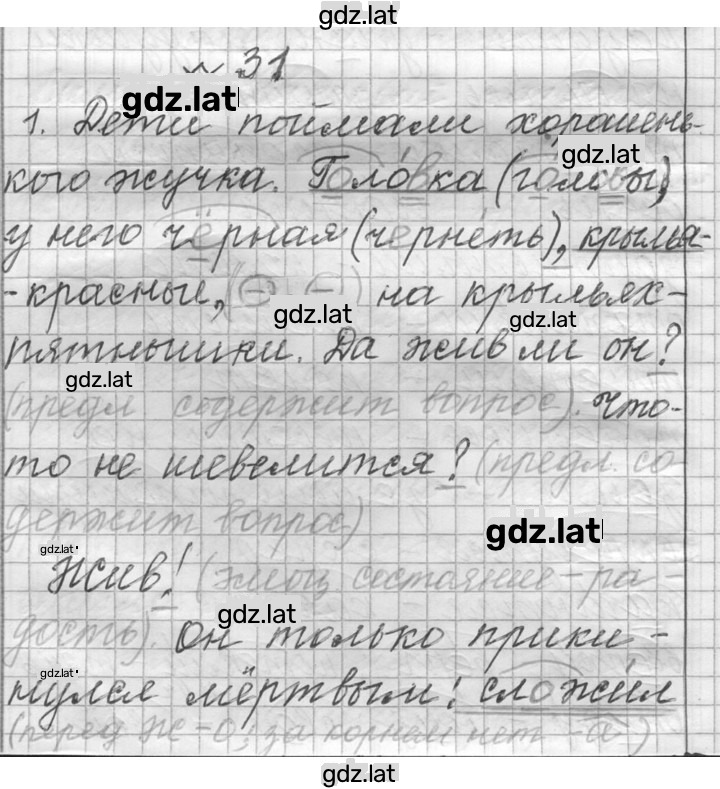 gdz.lat
№ 31
gdz.lat
1. Дети поймали хорошень-
gdz.lat
кого жучка. Головка (головы)
у него чёрная (чернеть), крылья-
-красные, на крыльях-
gdz.lat
gdz.lat
пятнышки. Да жив ли он?
gdz.lat
(предл содержит вопрос). Что-
то не шевелится? (предл. со
держит вопрос)
gdz.lat
gdz.lat
Жив! (эмоц. состояние - ра-
gdz.lat
дость). Он только прики-
gdz.lat
нулся мёртвым: сложил
(перед ж -о; за корнем нет -а)
gdz.lat